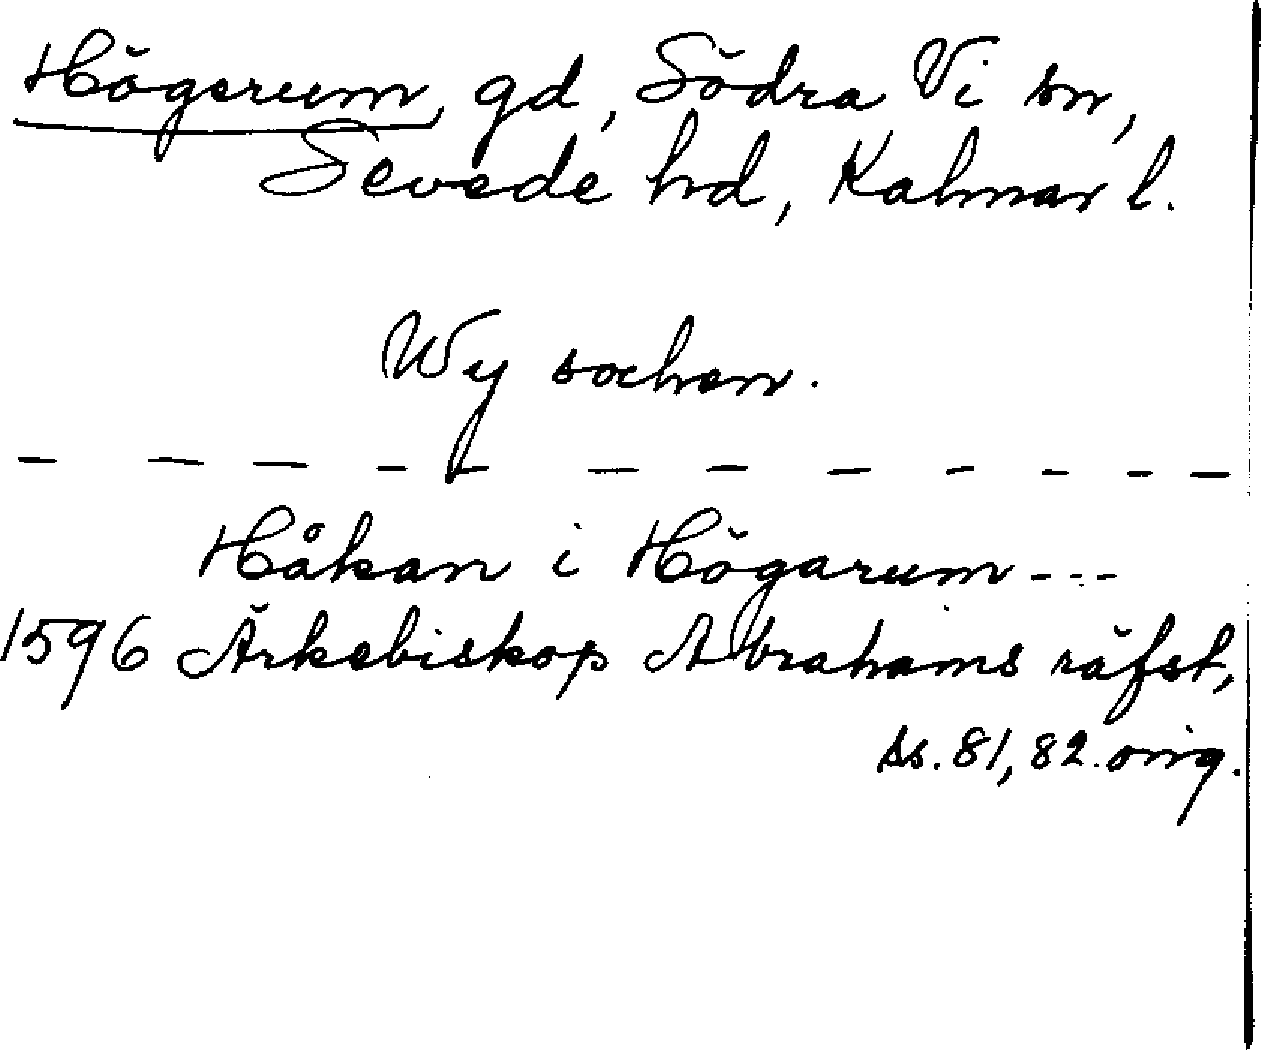 Högerum, gd, Södra Vi sn,
Sevede hd, Kalmar l.
Wy sochen.
– – – – – – – – – – – –
Håkan i Högarum - - -
1596 Ärkebiskop Abrahams räfst,
ss. 81, 82. orig.